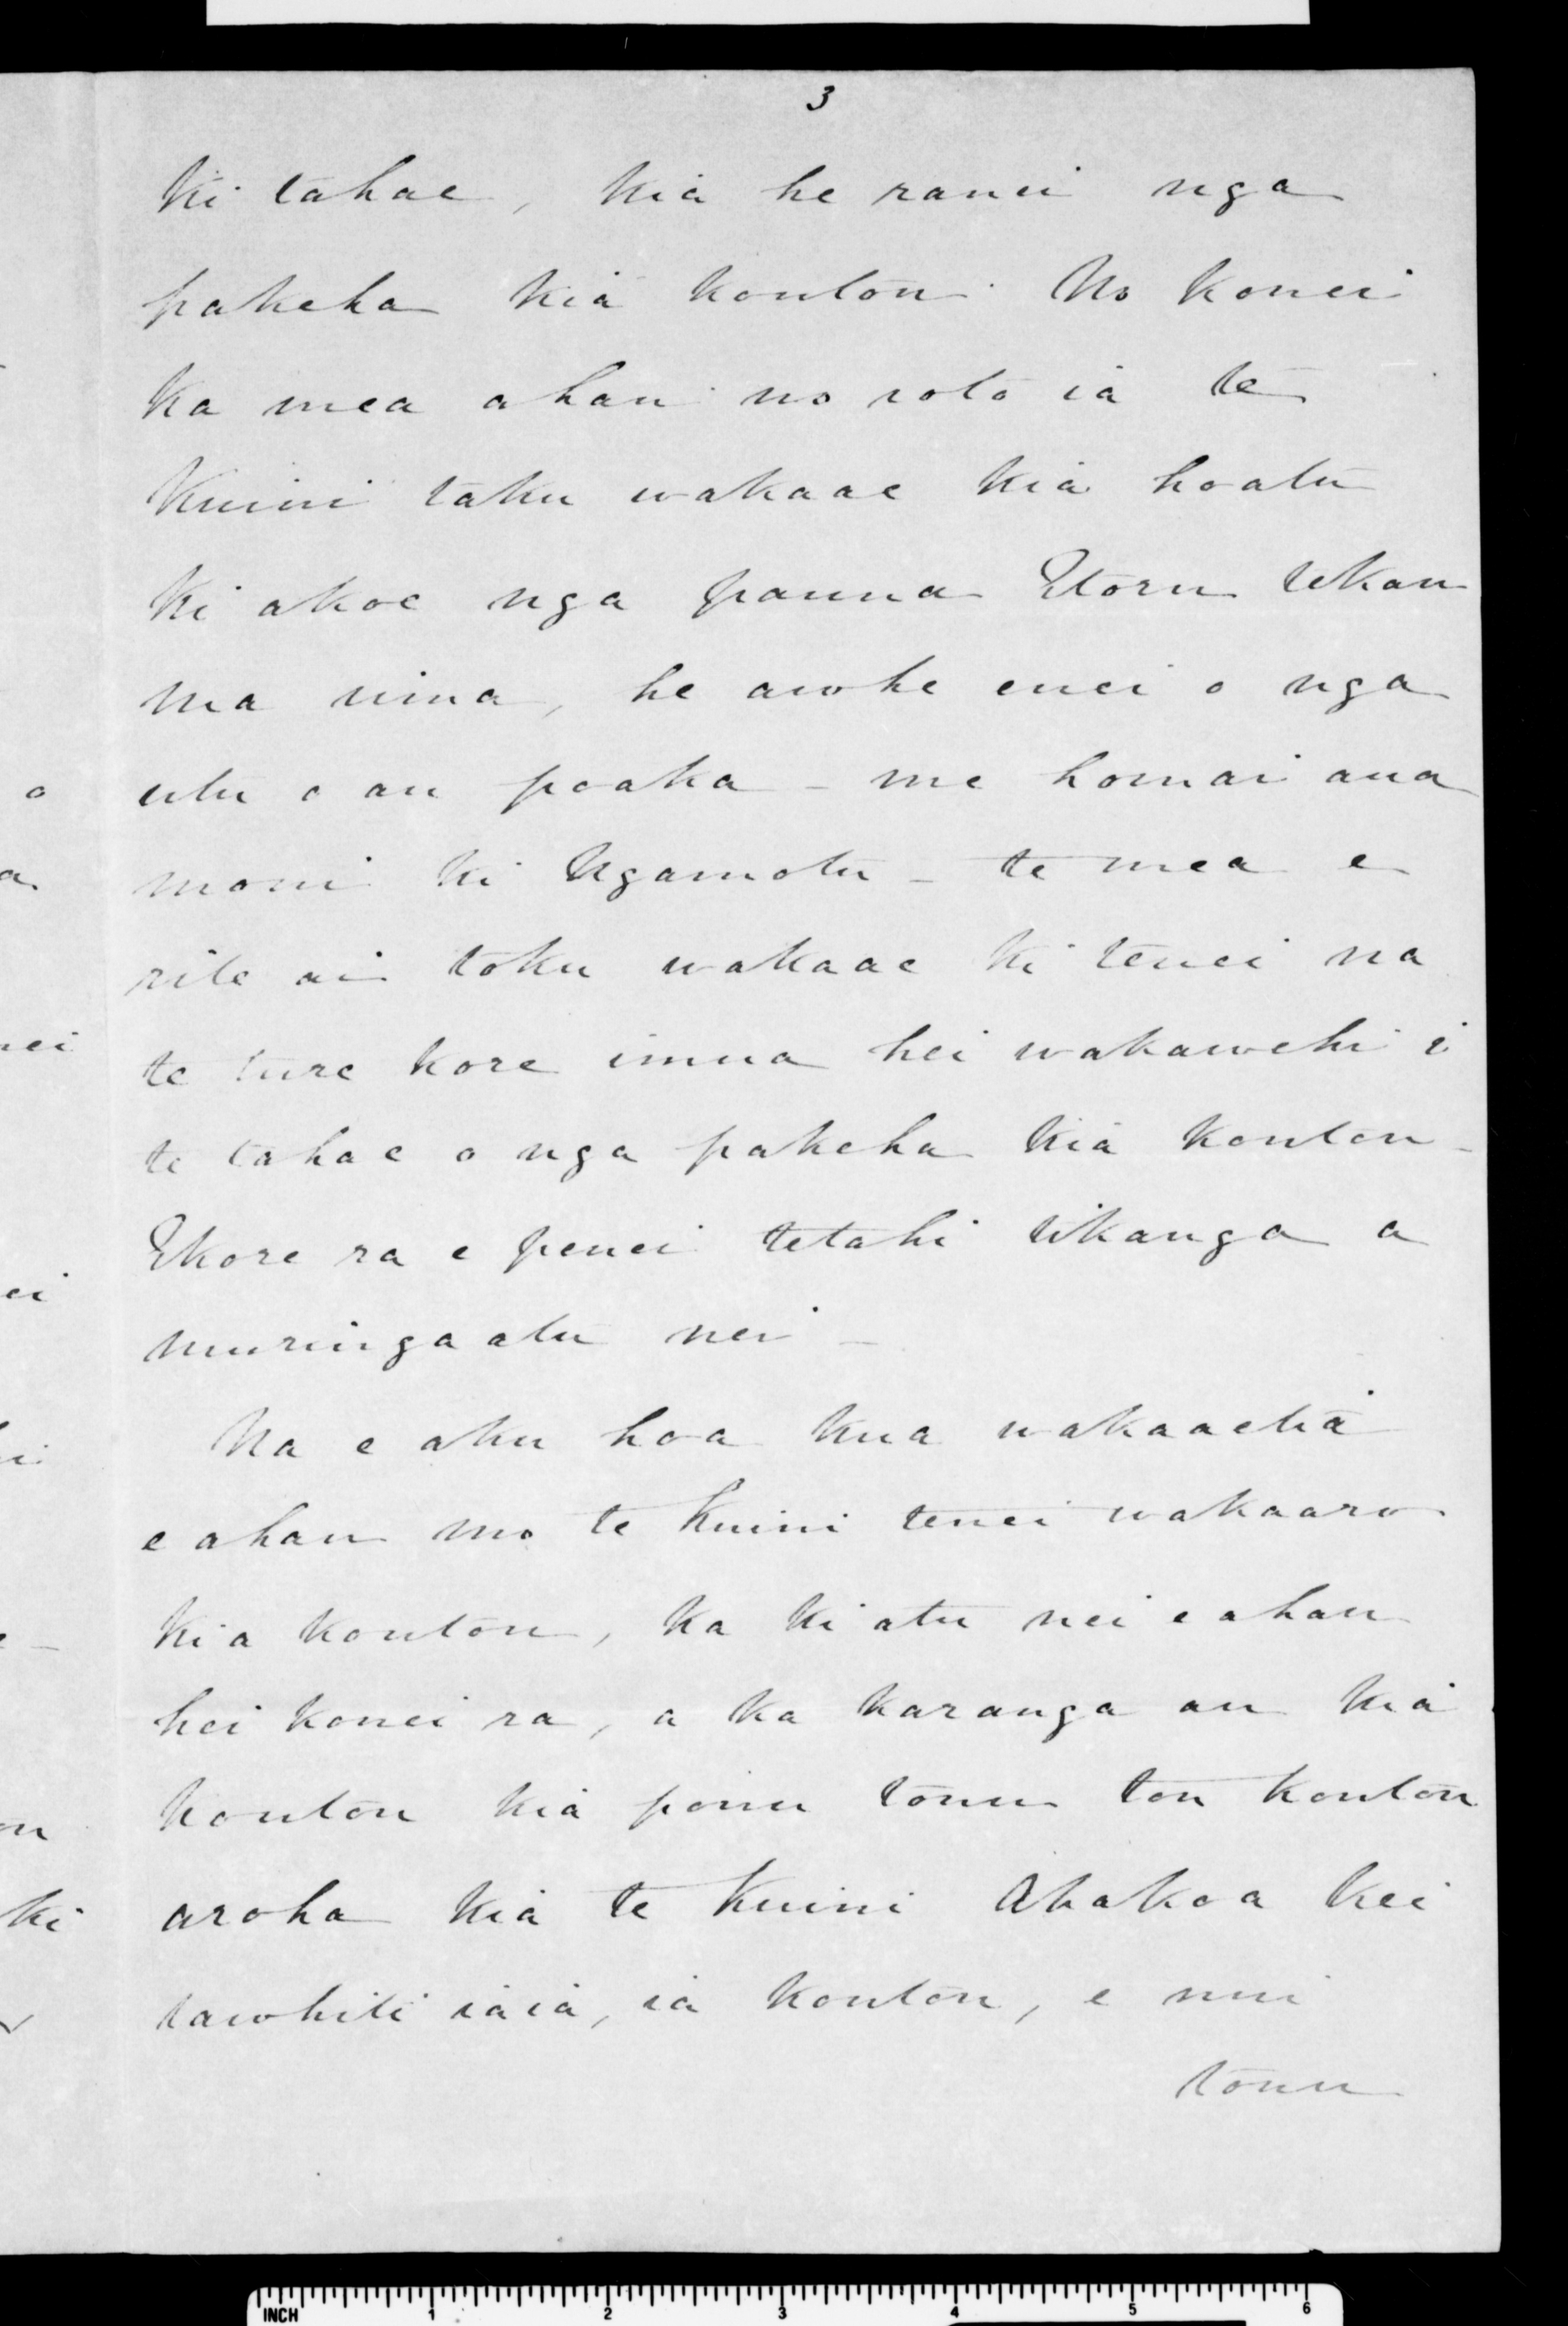 3
Ki tahae, kia he ranei nga
pakeha kia koutou. No konei
ka mea ahau no roto ia te
Kuini taku wakaae kia hoatu
ki akoe nga pauna Etoru tekau
ma rima, he awhe enei o nga
utu o au poaka - me homai aua
moni ki Ngamotu - te mea e
rite ai toku wakaae ki tenei na
te ture kore imua hei wakawehi i
te tahae o nga pakeha kia koutou -
Ekore ra e penei tetahi tikanga a
muringaatu nei -
Na e aku hoa kua wakaaetia
e ahau mo te Kuini tenei wakaaro
kia koutou, ka ki atu nei e ahau
hei konei ra, a ka karanga au kia
koutou kia ponu tonu tou koutou
aroha kia te Kuini Ahakoa kei
tawhiti iaia, ia koutou, e nui
tonu
o
a
nei
ei
hi
e -
ou
ki
INCH 1 2 3 4 5 6